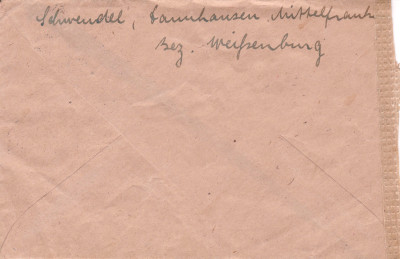 Schwendel, Tannhausen Mittelfrank
Bez. Weißenburg